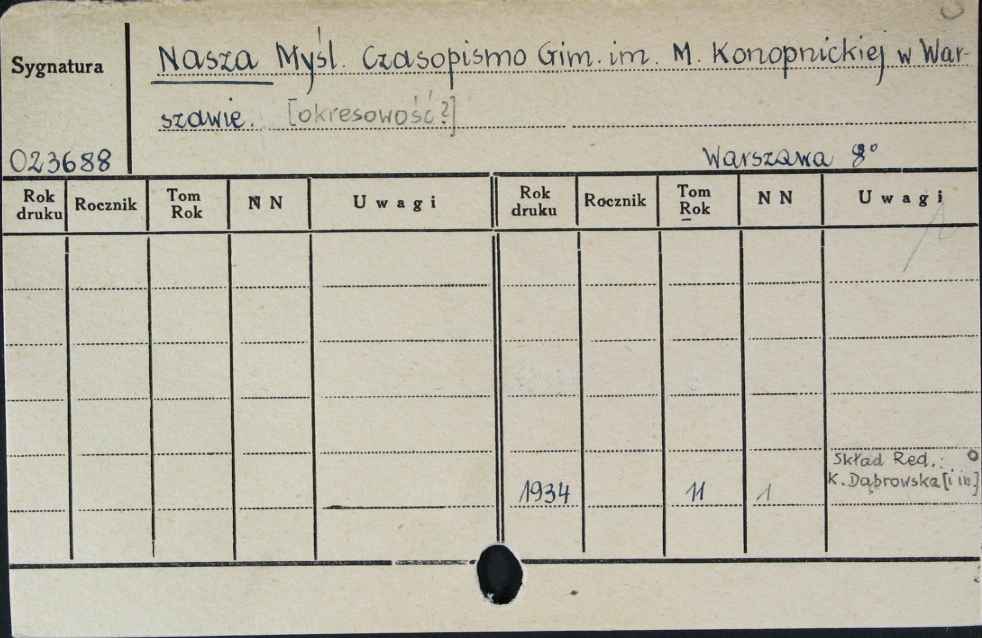 Sygnatura
Nasza Myśl. Czasopismo Gim. im. M. Konopnickiej w War-
szawie. [okresowość?]
023688
Warszawa 8°
Rok druku Rocznik Tom Rok NN Uwagi Rok druku Rocznik Tom Rok NN Uwagi
Skład Red.:
K. Dąbrowska [i in]
1934 11 1